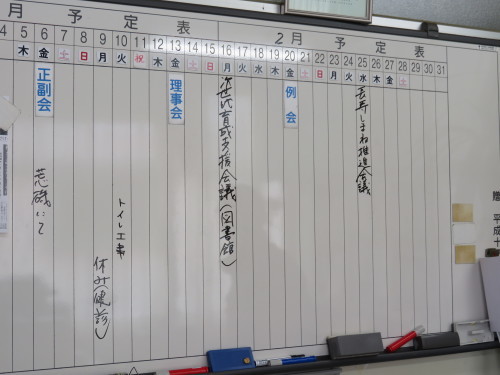 月 予 定 表
2月 予 定 表
4 5 6 7 8 9 10 11 12 13 14 15 16 17 18 19 20 21 22 23 24 25 26 27 28 29 30 31
木 金 土 日 月 火 祝 木 金 土 日 月 火 水 木 金 土 日 月 火 水 木 金 土
正副会
荒磯にて
休み(健診)
トイレ工事
理事会
次世代育成支援会議(図書館)
例会
長寿しまね推進会議
贈 平成十